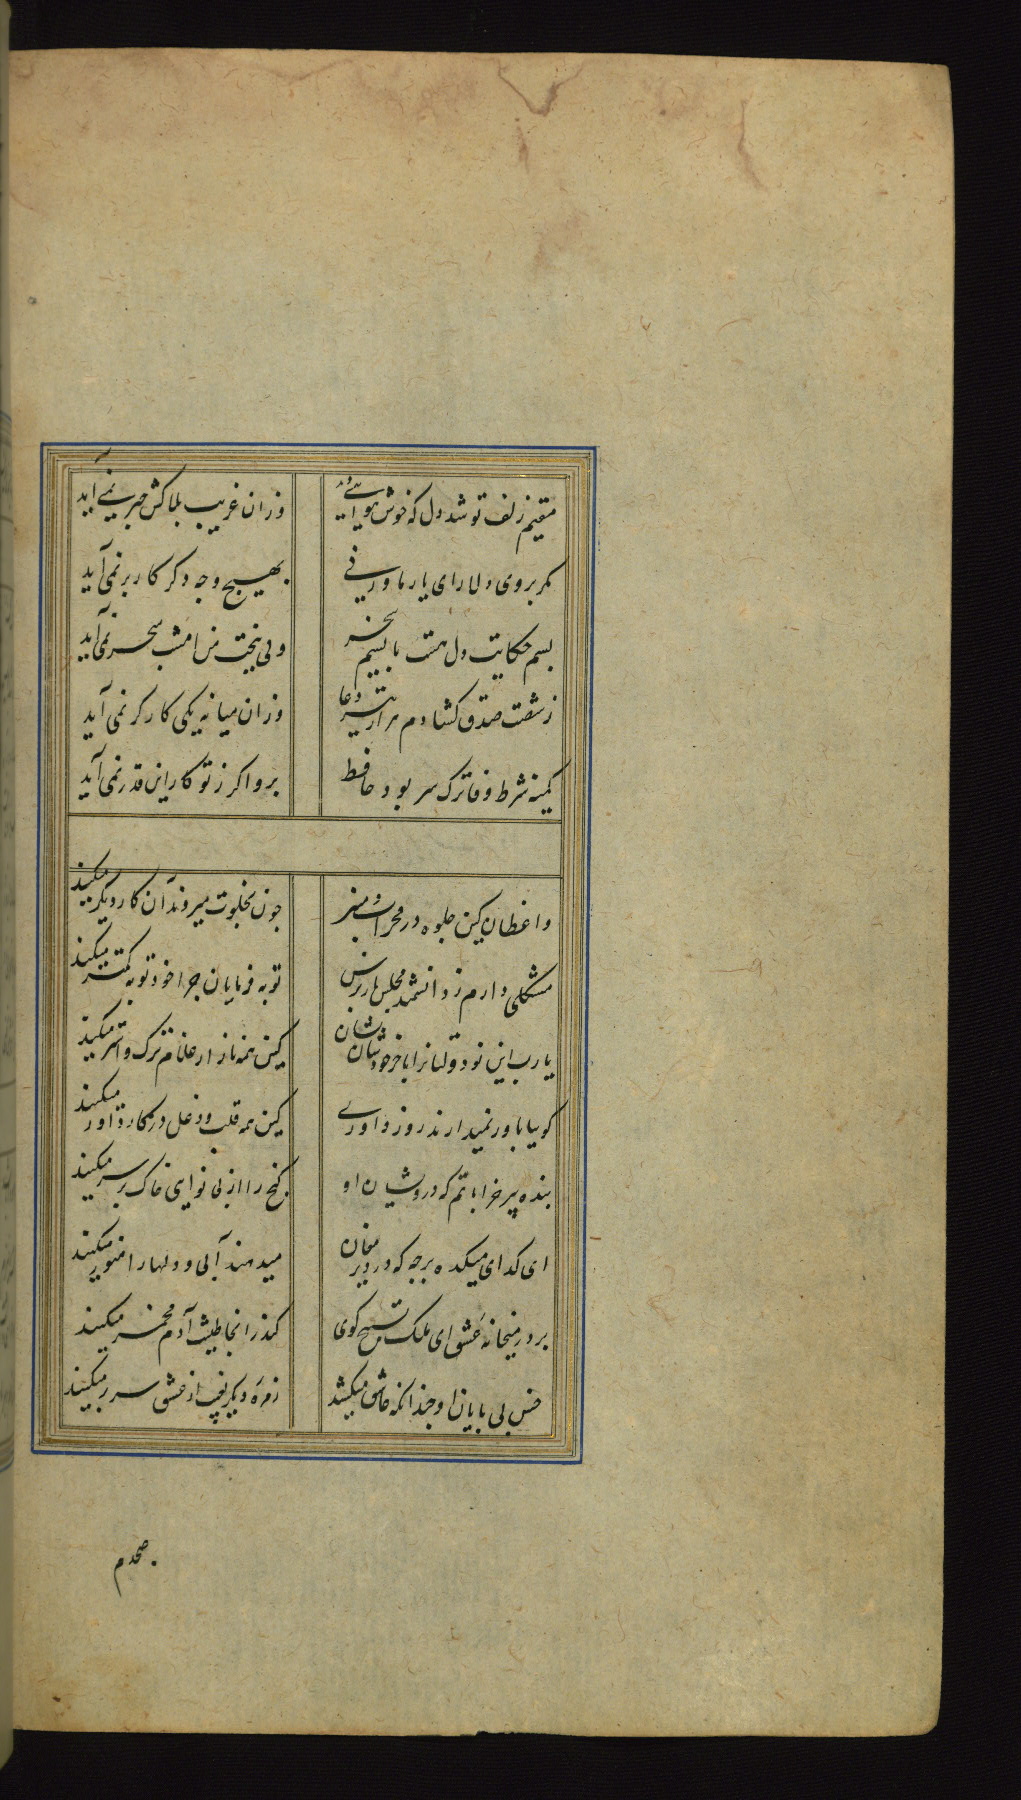 مقیم زلف تو شد دل که خوش هوایی دید
وزان غریب بلاکش خبر نمی آید
مکر بروی دلارای یار ما ورنی
بهیچ وجه دکر کار بر نمی آید
بسم حکایت دل هست با نسیم سحر
ولی ببخت من امشب سحر نمی آید
ز شصت صدق کشادم هزار تیر دعا
وزان میانه یکی کارکر نمی آید
کمینه شرط وفا ترک سر بود حافظ
برو اکر ز تو کار این قدر نمی آید
واعظان کین جلوه در محراب و منبر میکنند
چون بخلوت میروند آن کار دیکر میکنند
مشکلی دارم ز دانشمند مجلس بازپرس
توبه فرمایان چرا خود توبه کمتر میکنند
یارب این نودولتانرا با خر خودشان نشان
کین همه ناز از غلام ترک و استر میکنند
کوییا باور نمیدارند روز داوری
کین همه قلب و دغل در کار داور میکنند
بنده پیر خراباتم که درویشان او
کنج را از بی نوایی خاک بر سر میکنند
ای کدای میکده برجه که در دیر مغان
میدهند آبی و دلها را منور میکنند
بر در میخانه عشق ای ملک تسبیح کوی
کاندرانجا طینت آدم مخمر میکنند
حسن بی پایان او چندانکه عاشق میکشد
زمره دیکر بعشق از سر بر میکنند
صبحدم